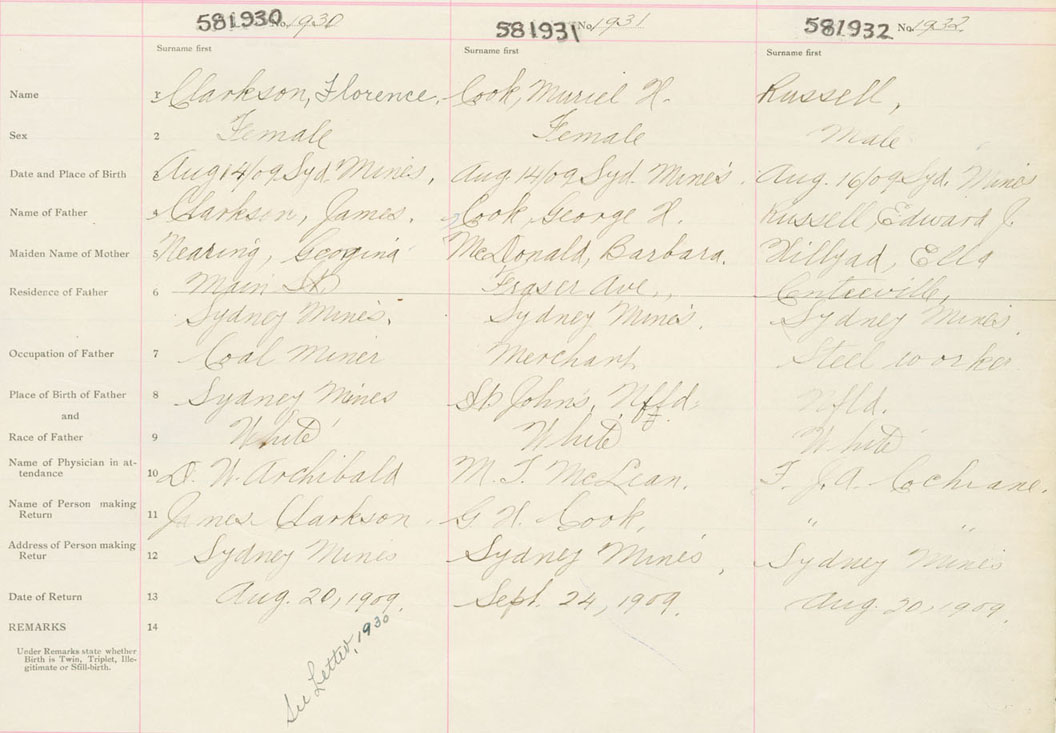 581930 No. 1930 581931 No. 1931 581932 No. 1932
Surname first Surname first Surname first
Name 1 Clarkson, Florence. Cook, Muriel H. Russell,
Sex 2 Female Female Male
Date and Place of Birth Aug 14/09 Syd. Mines. Aug 14/09 Syd. Mines. Aug. 16/09 Syd. Mines
Name of Father 4 Clarkson, James. Cook George H. Russell, Edward J.
Maiden Name of Mother 5 Nearing, Georgina McDonald, Barbara. Hillyad, Ella
Residence of Father 6 Main St. Fraser Ave., Centreville,
Sydney Mines. Sydney Mines. Sydney Mines.
Occupation of Father 7 Coal Miner Merchant Steel worker
Place of Birth of Father 8 Sydney Mines St. John's, Nfld. Nfld.
and
Race of Father 9 White White White
Name of Physician in at-
tendance 10 W. Archibald M. T. McLean. F. J. A. Cochrane.
Name of Person making
Return 11 James Clarkson. G H. Cook. " "
Address of Person making
Retur 12 Sydney Mines Sydney Mines, Sydney Mines
Date of Return 13 Aug. 20, 1909. Sept. 24, 1909. Aug. 20, 1909.
REMARKS 14
Under Remarks state whether
Birth is Twin, Triplet, Ille-
gitimate or Still-birth.
See Letter, 1930